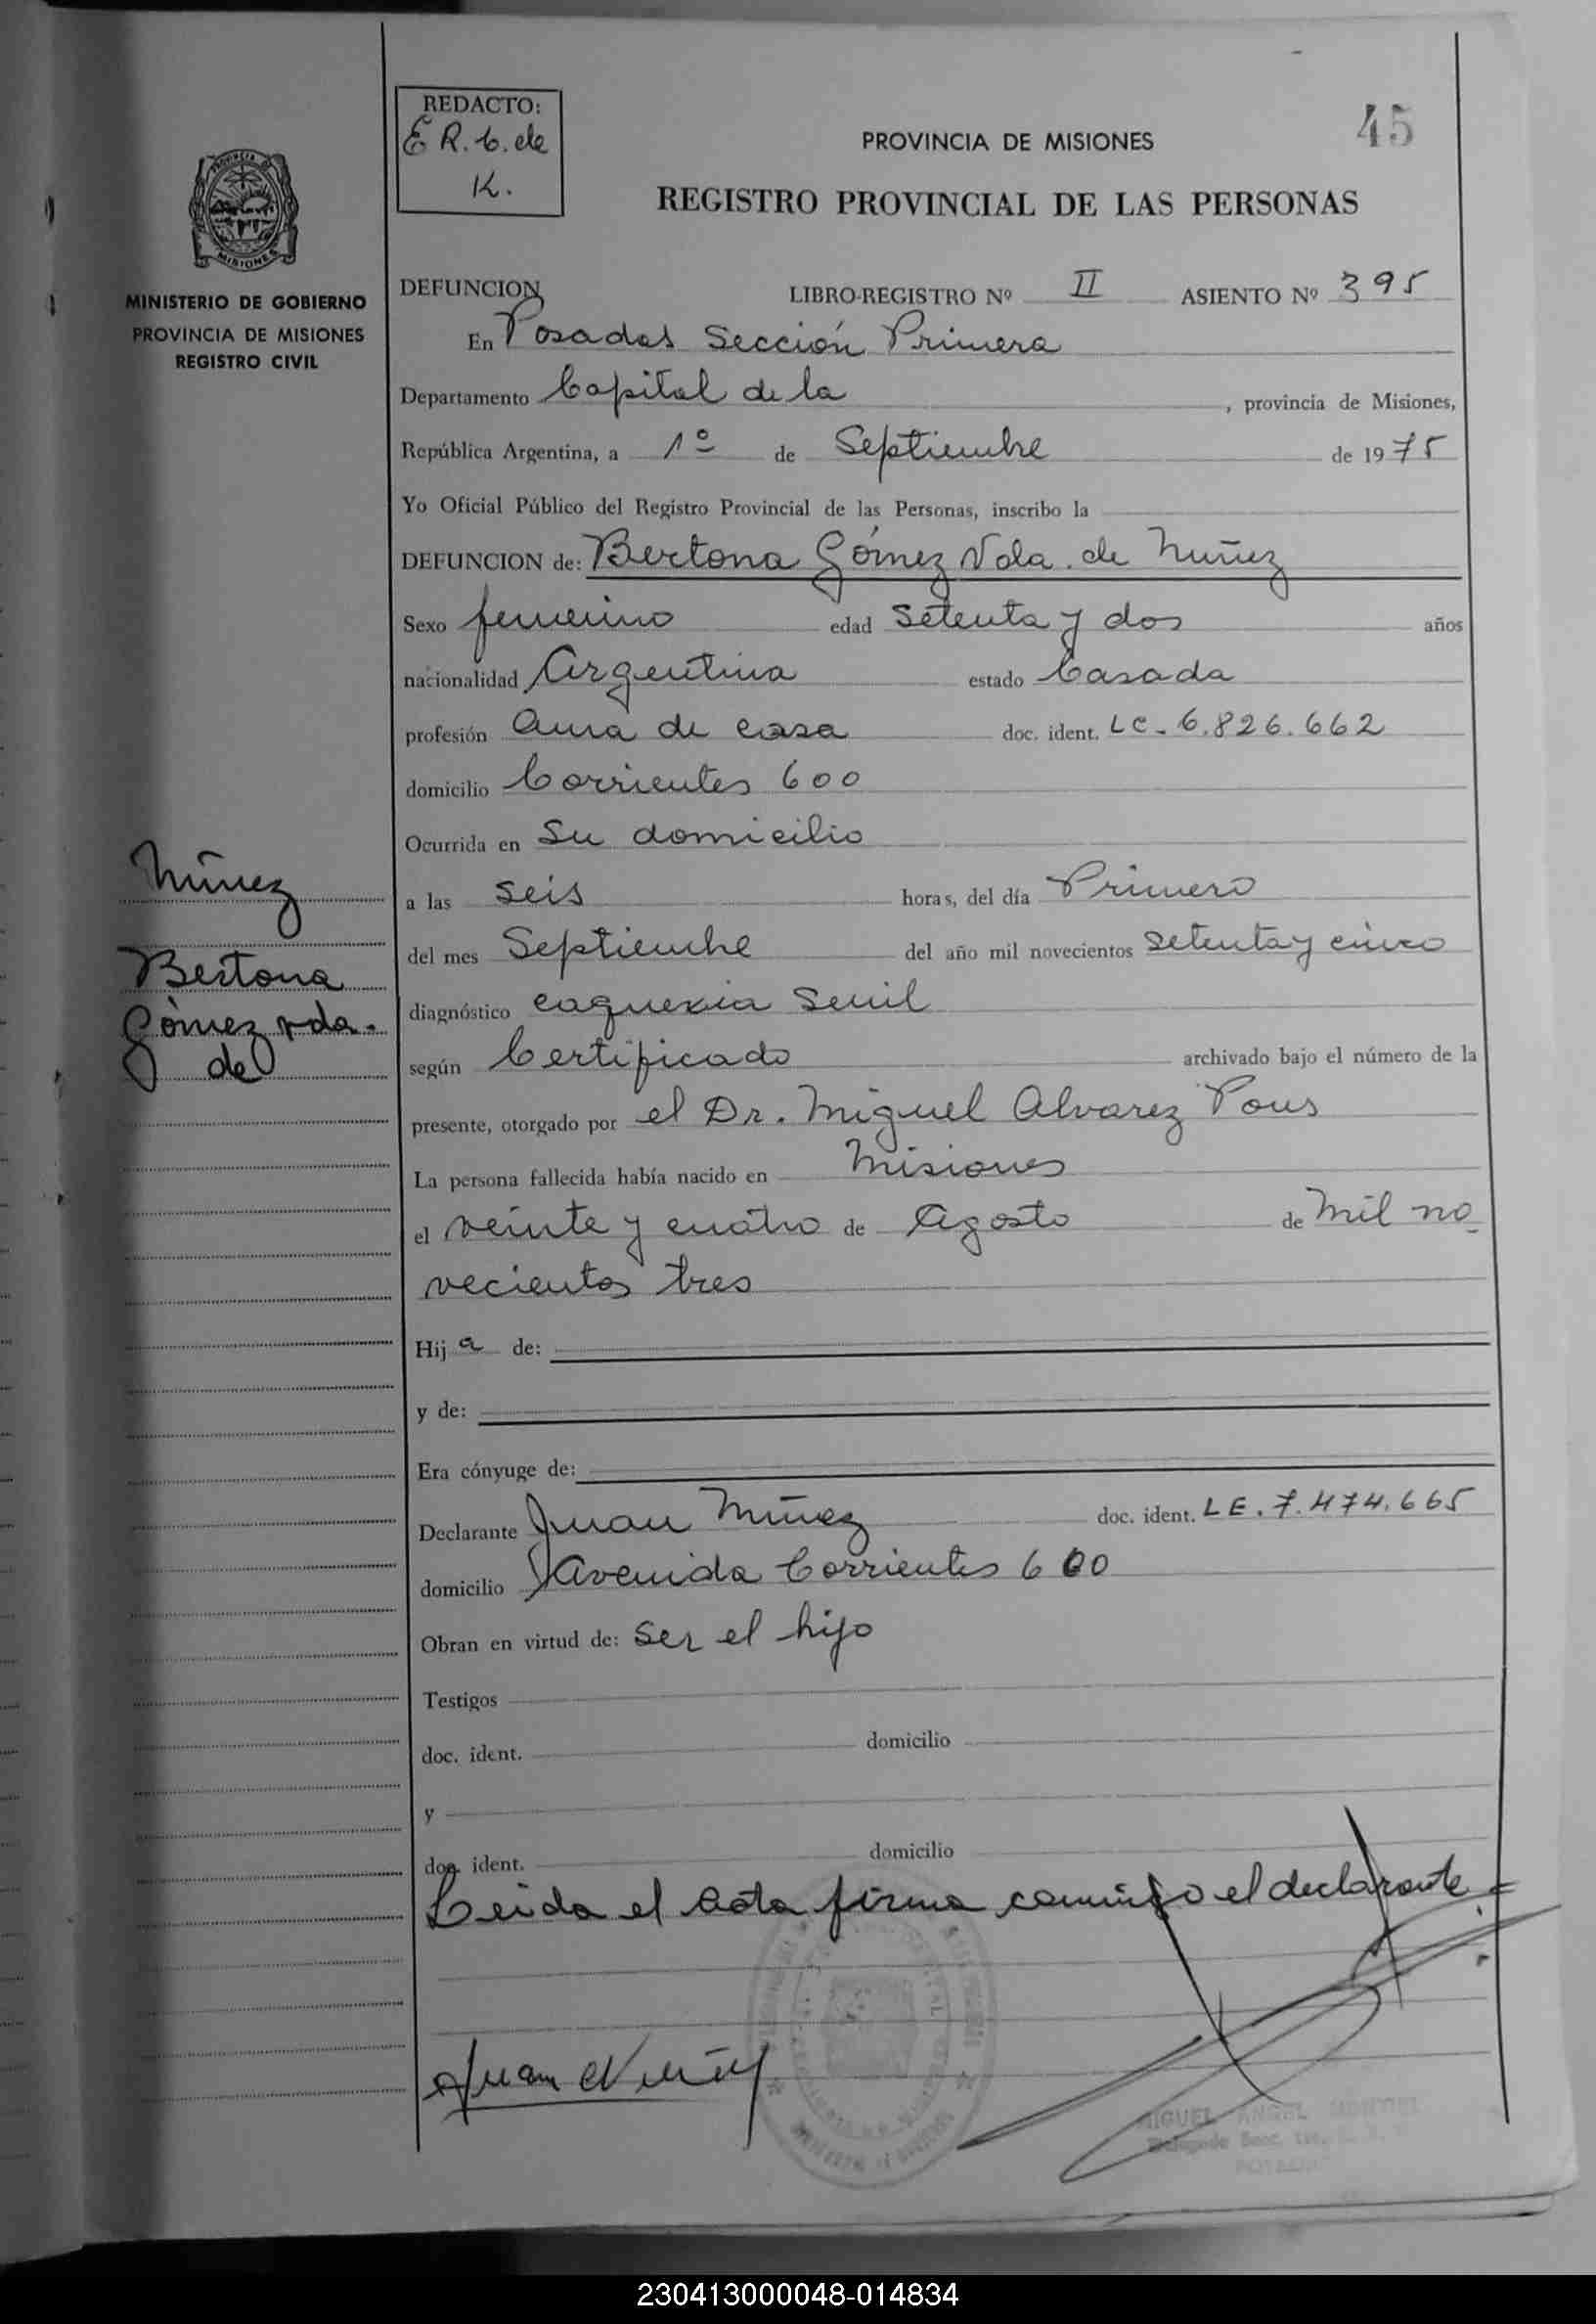 REDACTO:
E R. C. de
K.
45
PROVINCIA DE MISIONES
REGISTRO PROVINCIAL DE LAS PERSONAS
MISIONES
MINISTERIO DE GOBIERNO
PROVINCIA DE MISIONES
REGISTRO CIVIL
DEFUNCION LIBRO-REGISTRO Nº II ASIENTO Nº 395
En Posadas Sección Primera
Departamento Capital de la , provincia de Misiones,
República Argentina, a 1º de Septiembre de 1975
Yo Oficial Público del Registro Provincial de las Personas, inscribo la
DEFUNCION de: Bertona Gómez Vda. de Nuñez
Sexo femenino edad Setenta y dos años
nacionalidad Argentina estado Casada
profesión Ama de casa doc. ident. LC. 6.826.662
domicilio Corrientes 600
Ocurrida en Su domicilio
a las seis horas, del día Primero
del mes Septiembre del año mil novecientos setenta y cinco
diagnóstico caquexia senil
según Certificado archivado bajo el número de la
presente, otorgado por el Dr. Miguel Alvarez Pous
La persona fallecida había nacido en Misiones
el veinte y cuatro de Agosto de Mil no
vecientos tres
Hij a de:
y de:
Era cónyuge de:
Declarante Juan Núñez doc. ident. LE. 7.474.665
domicilio Avenida Corrientes 600
Obran en virtud de: ser el hijo
Testigos
doc. ident. domicilio
y
doc. ident. domicilio
Leida el Acta firma conmigo el declarante
Juan Nuñez
MIGUEL ANGEL MONTIEL
Núñez
Bertona
Gómez vda.
de
230413000048-014834